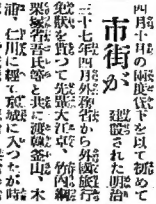 四月十日の兩度代下を以て初めて
市街が
建設された明治
三十七年四月外務省から外國旅行
免狀を貰つて先輩大江卓、竹内綱
栗塚省吾氏等と共に渡韓釜山、木
浦、仁川を經て京城に入つたが時